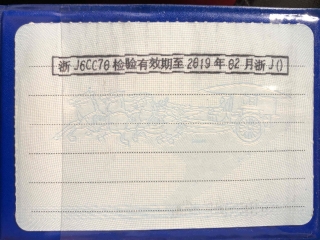 浙J6CC76检验有效期至2019年02月浙J()